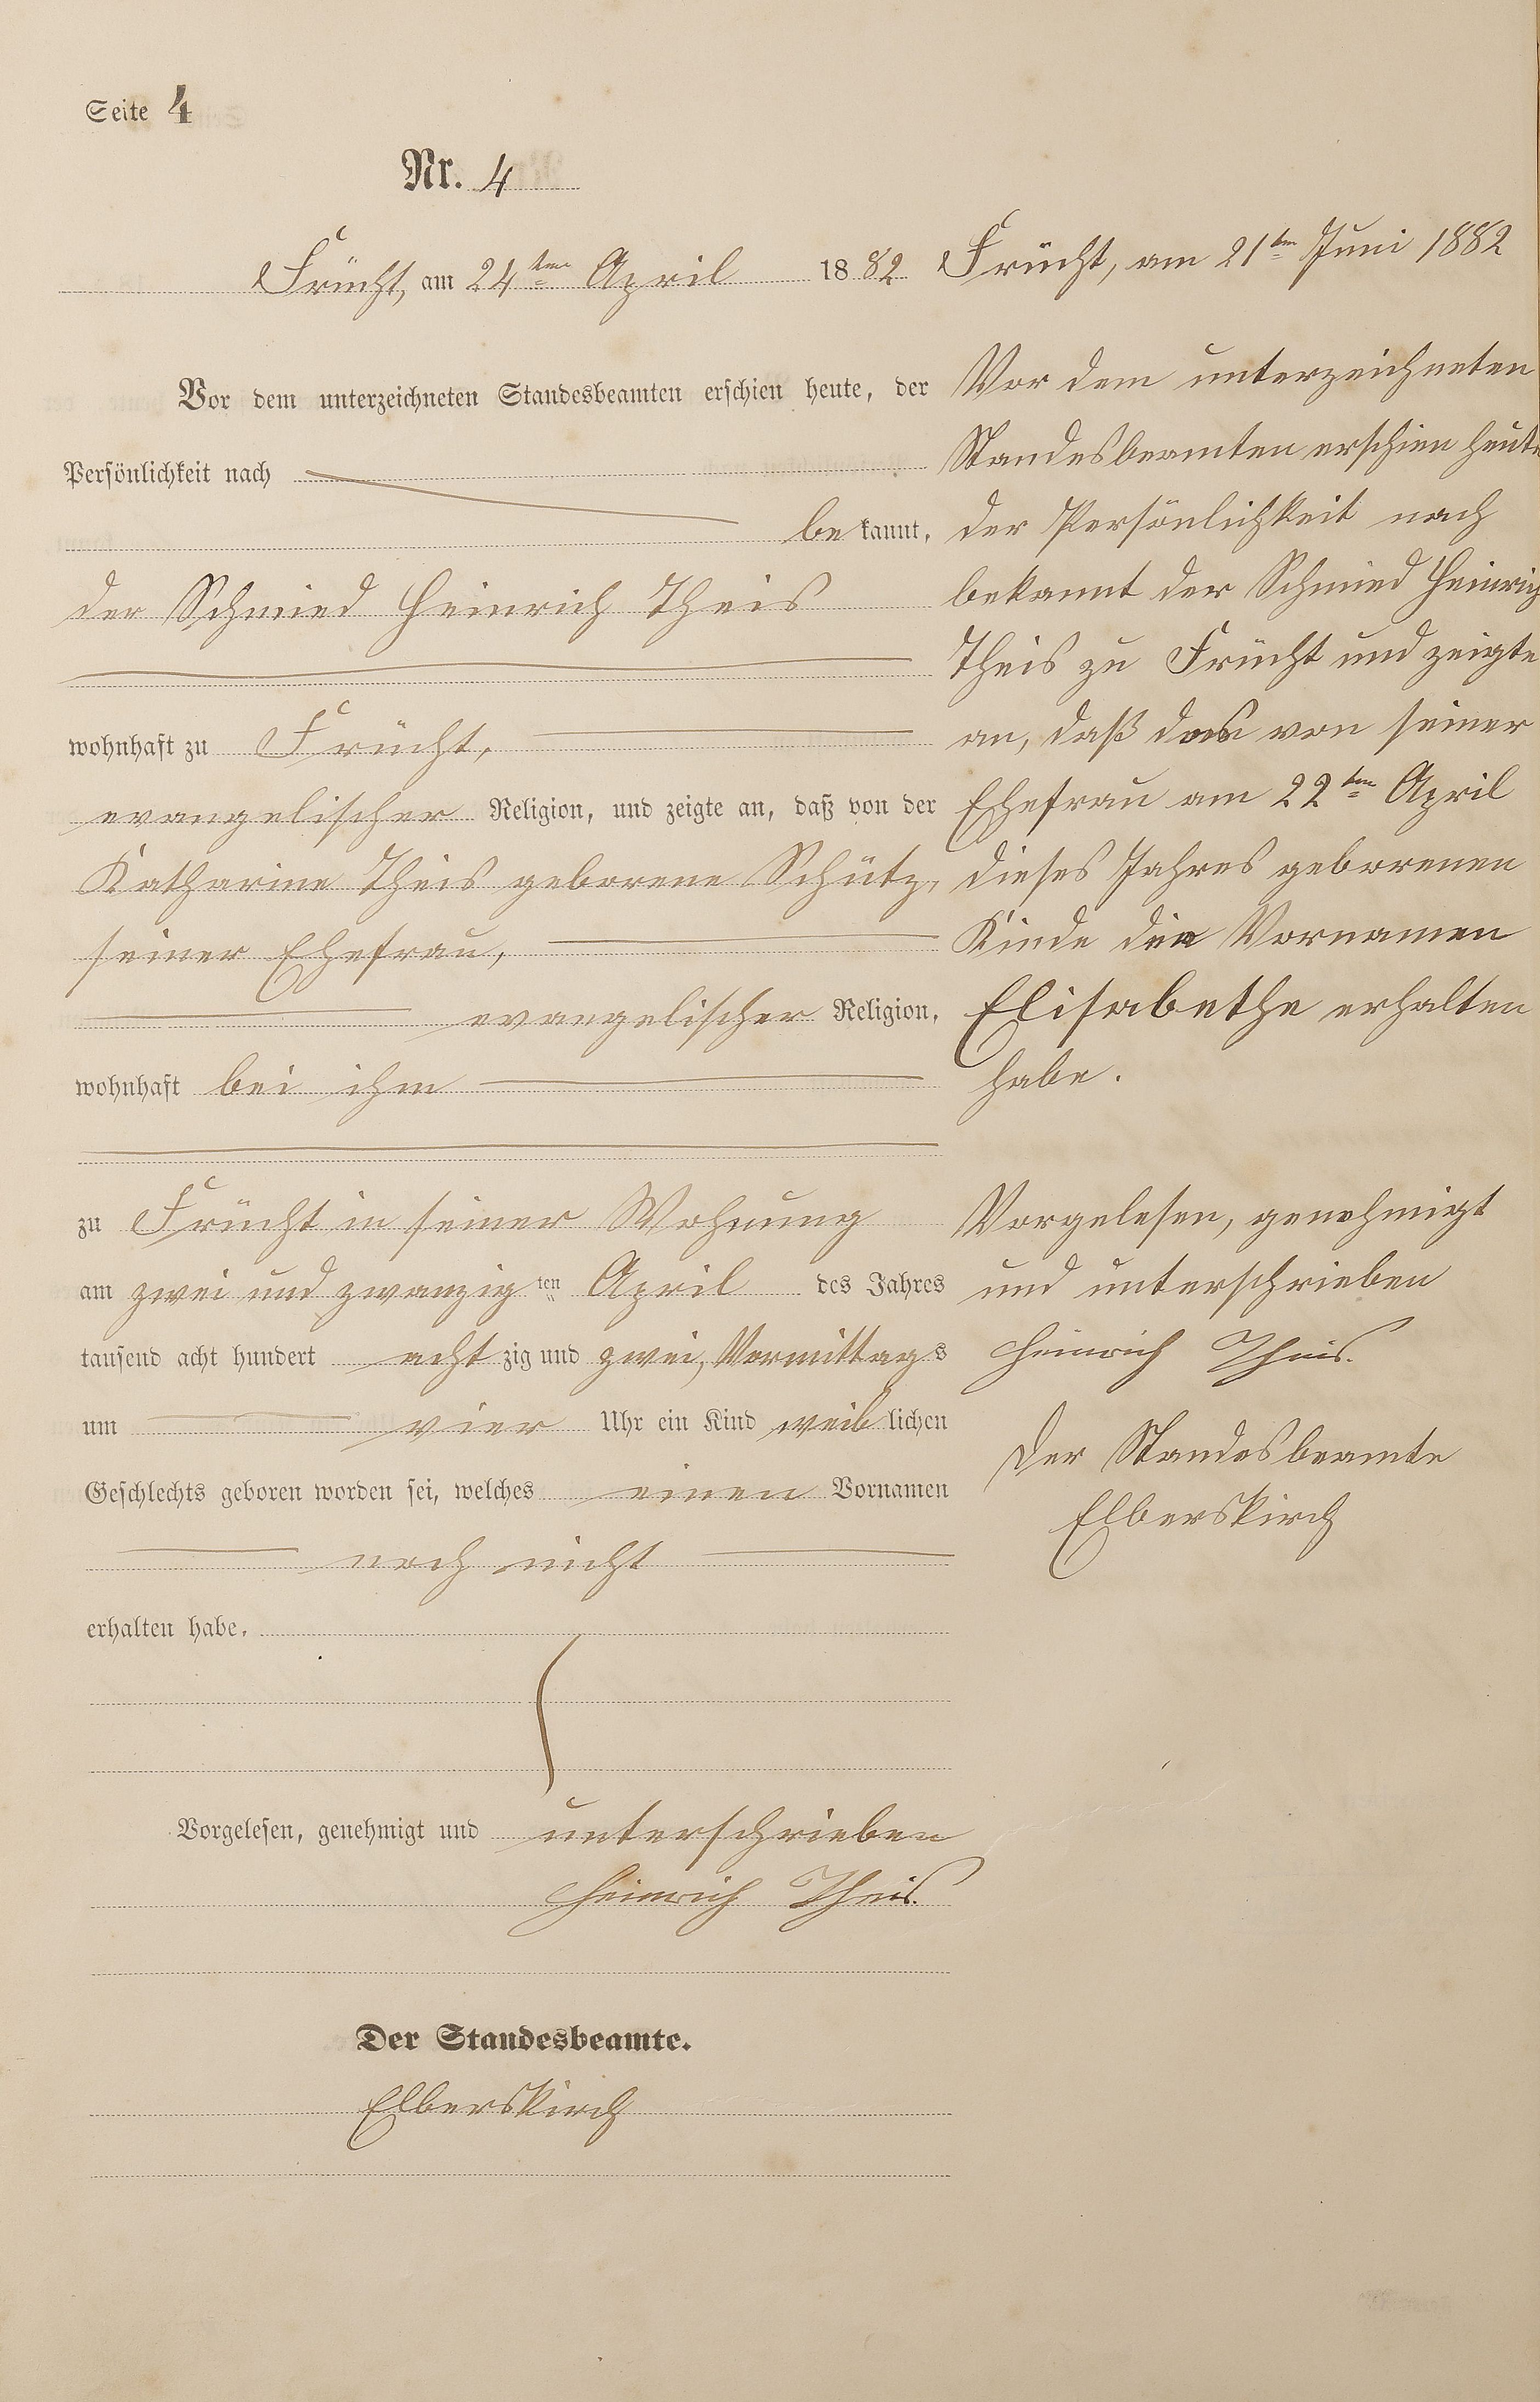 Seite 4
Nr. 4
Frücht, am 24ten April 1882
Vor dem unterzeichneten Standesbeamten erschien heute, der
Persönlichkeit nach
bekannt,
der Schmied Heinrich Theis
wohnhaft zu Frücht,
evangelischer Religion, und zeigte an, daß von der
Katharine Theis geborene Schütz,
seiner Ehefrau,
evangelischer Religion,
wohnhaft bei ihm
zu Frücht in seiner Wohnung
am zwei und zwanzigten April des Jahres
tausend acht hundert achtzig und zwei, Vormittags
um vier Uhr ein Kind weiblichen
Geschlechts geboren worden sei, welches einen Vornamen
noch nicht
erhalten habe.
Vorgelesen, genehmigt und unterschrieben
Heinrich Theis.
Der Standesbeamte.
Elberskirch
Frücht, am 21ten Juni 1882
Vor dem unterzeichneten
Standesbeamten erschien heute
der Persönlichkeit nach
bekannt der Schmied Heinrich
Theis zu Frücht und zeigte
an, daß das von seiner
Ehefrau am 22ten April
dieses Jahres geborenen
Kinde den Vornamen
Elisabethe erhalten
habe.
Vorgelesen, genehmigt
und unterschrieben
Heinrich Theis.
Der Standesbeamte
Elberskirch